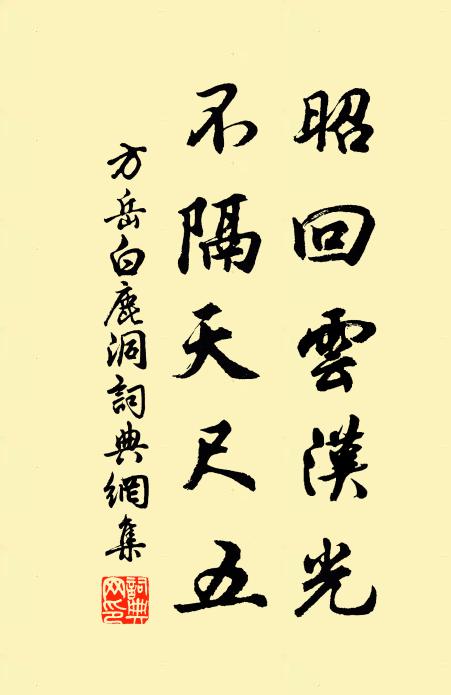 昭回雲漢光
不隔天尺五
方岳白鹿洞詞典網集
詞典網印